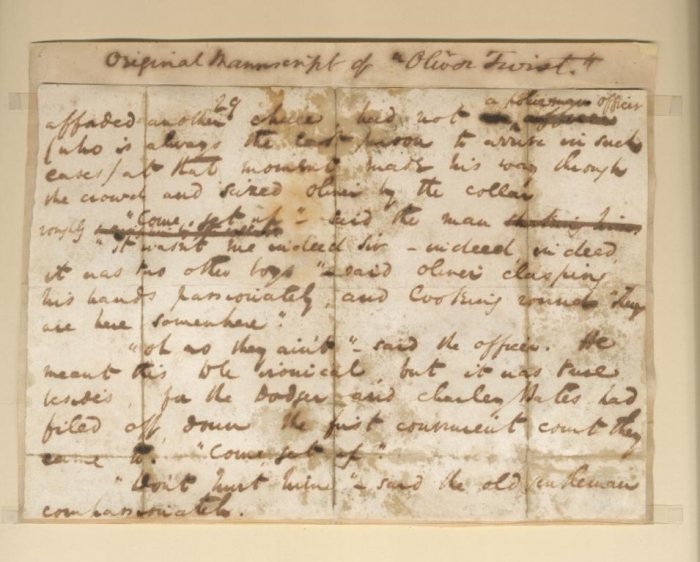 Original Manuscript of "Oliver Twist."
29
a policeman officer
afforded another cheer had not
(who is always the last person to arrive in such
cases) at that moment made his way through
the crowd and seized oliver by the collar
roughly "Come, get up" - said the man
"It wasn't me indeed Sir - indeed, indeed,
it was two other boys" - said oliver clasping
his hands passionately, and looking round "They
are here somewhere".
"oh no they ain't" - said the officer. He
meant this to be ironical, but it was true
besides, for the Dodger and charley Bates had
filed off down the first convenient court they
came to. "Come, get up".
"Don't hurt him" - said the old gentleman
compassionately.